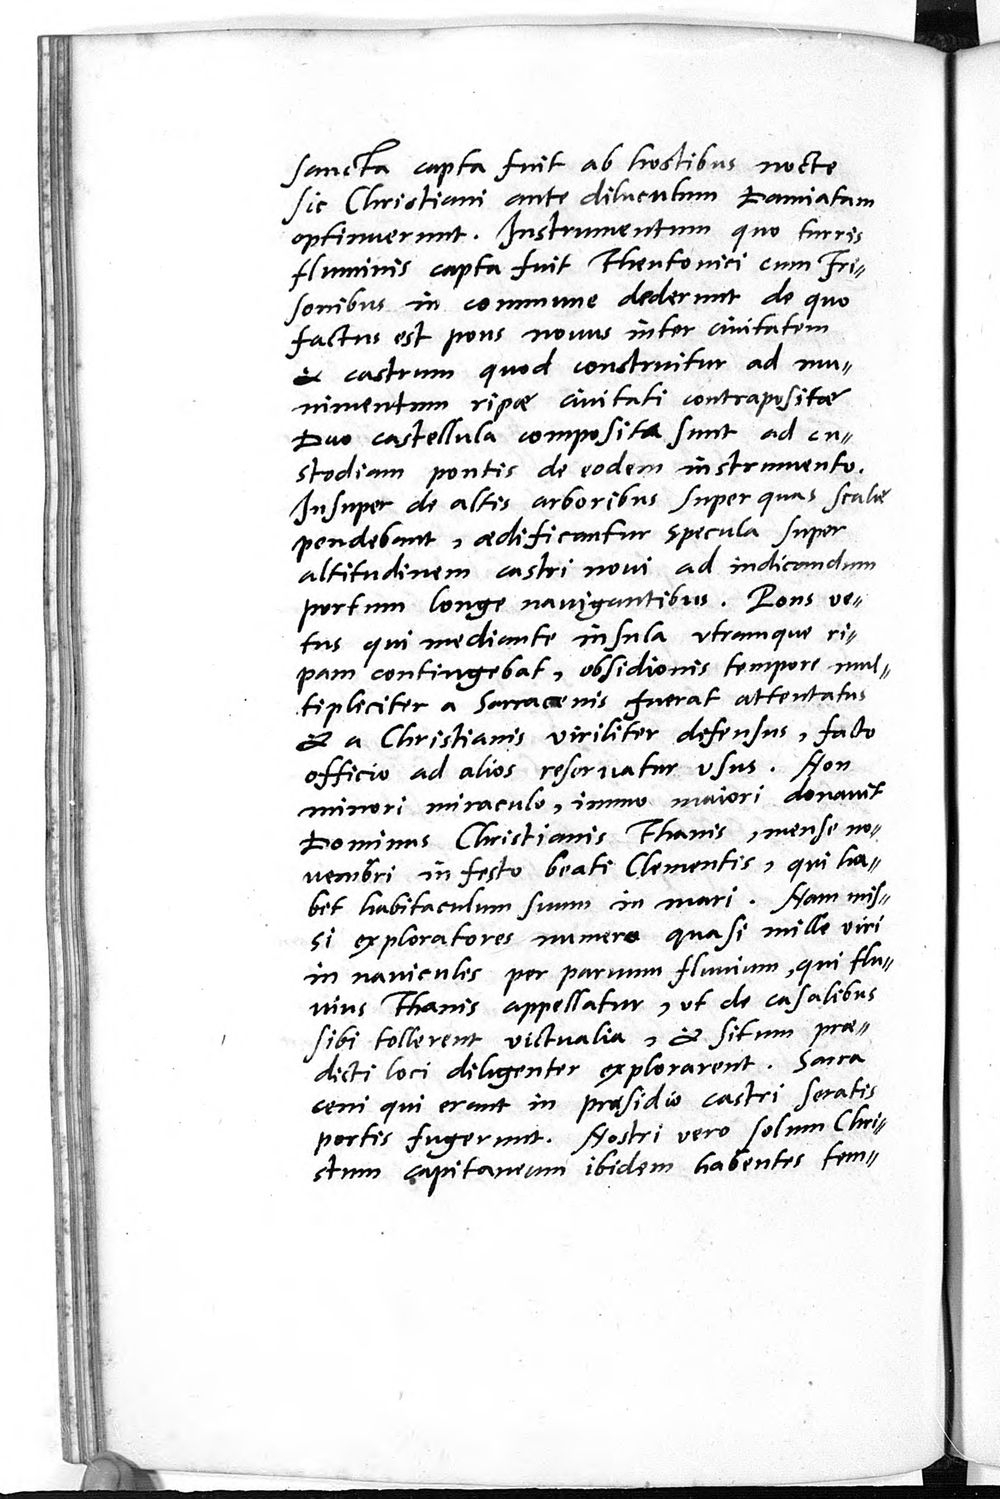 sancta capta fuit ab hostibus nocte
sic Christiani ante diluculum Damiatam
optinuerunt. Instrumentum quo turris
fluminis capta fuit Theutonici cum Fri„
sonibus in commune dederunt de quo
factus est pons novus inter civitatem
& castrum quod construitur ad mu„
nimentum ripæ civitati contrapositæ
Duo castellula composita sunt ad cu„
stodiam pontis de eodem instrumento.
Insuper de altis arboribus super quas scalæ
pendebant, ædificantur specula super
altitudinem castri novi ad indicandum
portum longe navigantibus. Pons ve„
tus qui mediante insula utramque ri„
pam contingebat, obsidionis tempore mul„
tipliciter a Sarracenis fuerat attentatus
& a Christianis viriliter defensus, facto
officio ad alios reservatur usus. Non
minori miraculo, immo maiori donavit
Dominus Christianis Thanis, mense no„
vembri in festo beati Clementis, qui ha„
bet habitaculum suum in mari. Nam mis„
si exploratores numero quasi mille viri
in naviculis per parvum fluvium, qui flu„
vius Thanis appellatur, ut de casalibus
sibi tollerent victualia, & situm præ„
dicti loci diligenter explorarent. Sarra
ceni qui erant in præsidio castri seratis
portis fugerunt. Nostri vero solum Chri„
stum capitaneum ibidem habentes tem„